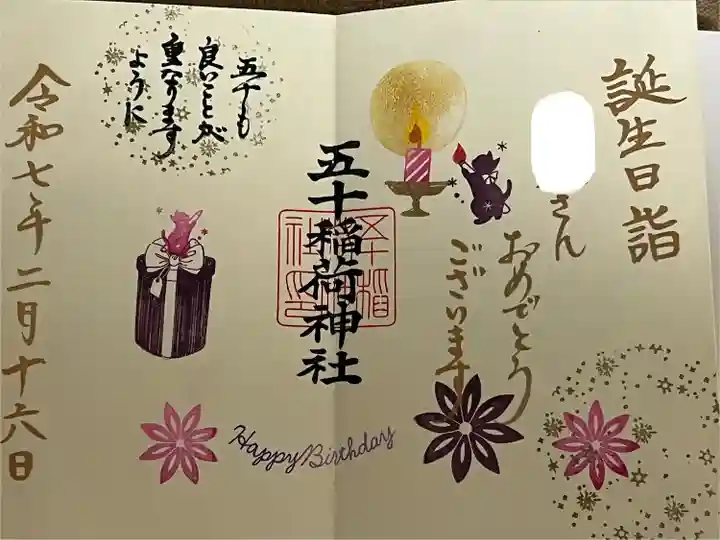 誕生日詣
さん
おめでとう
ございます
五十稲荷神社
五十も
良いことが
重なります
ように
令和七年二月十六日
Happy Birthday